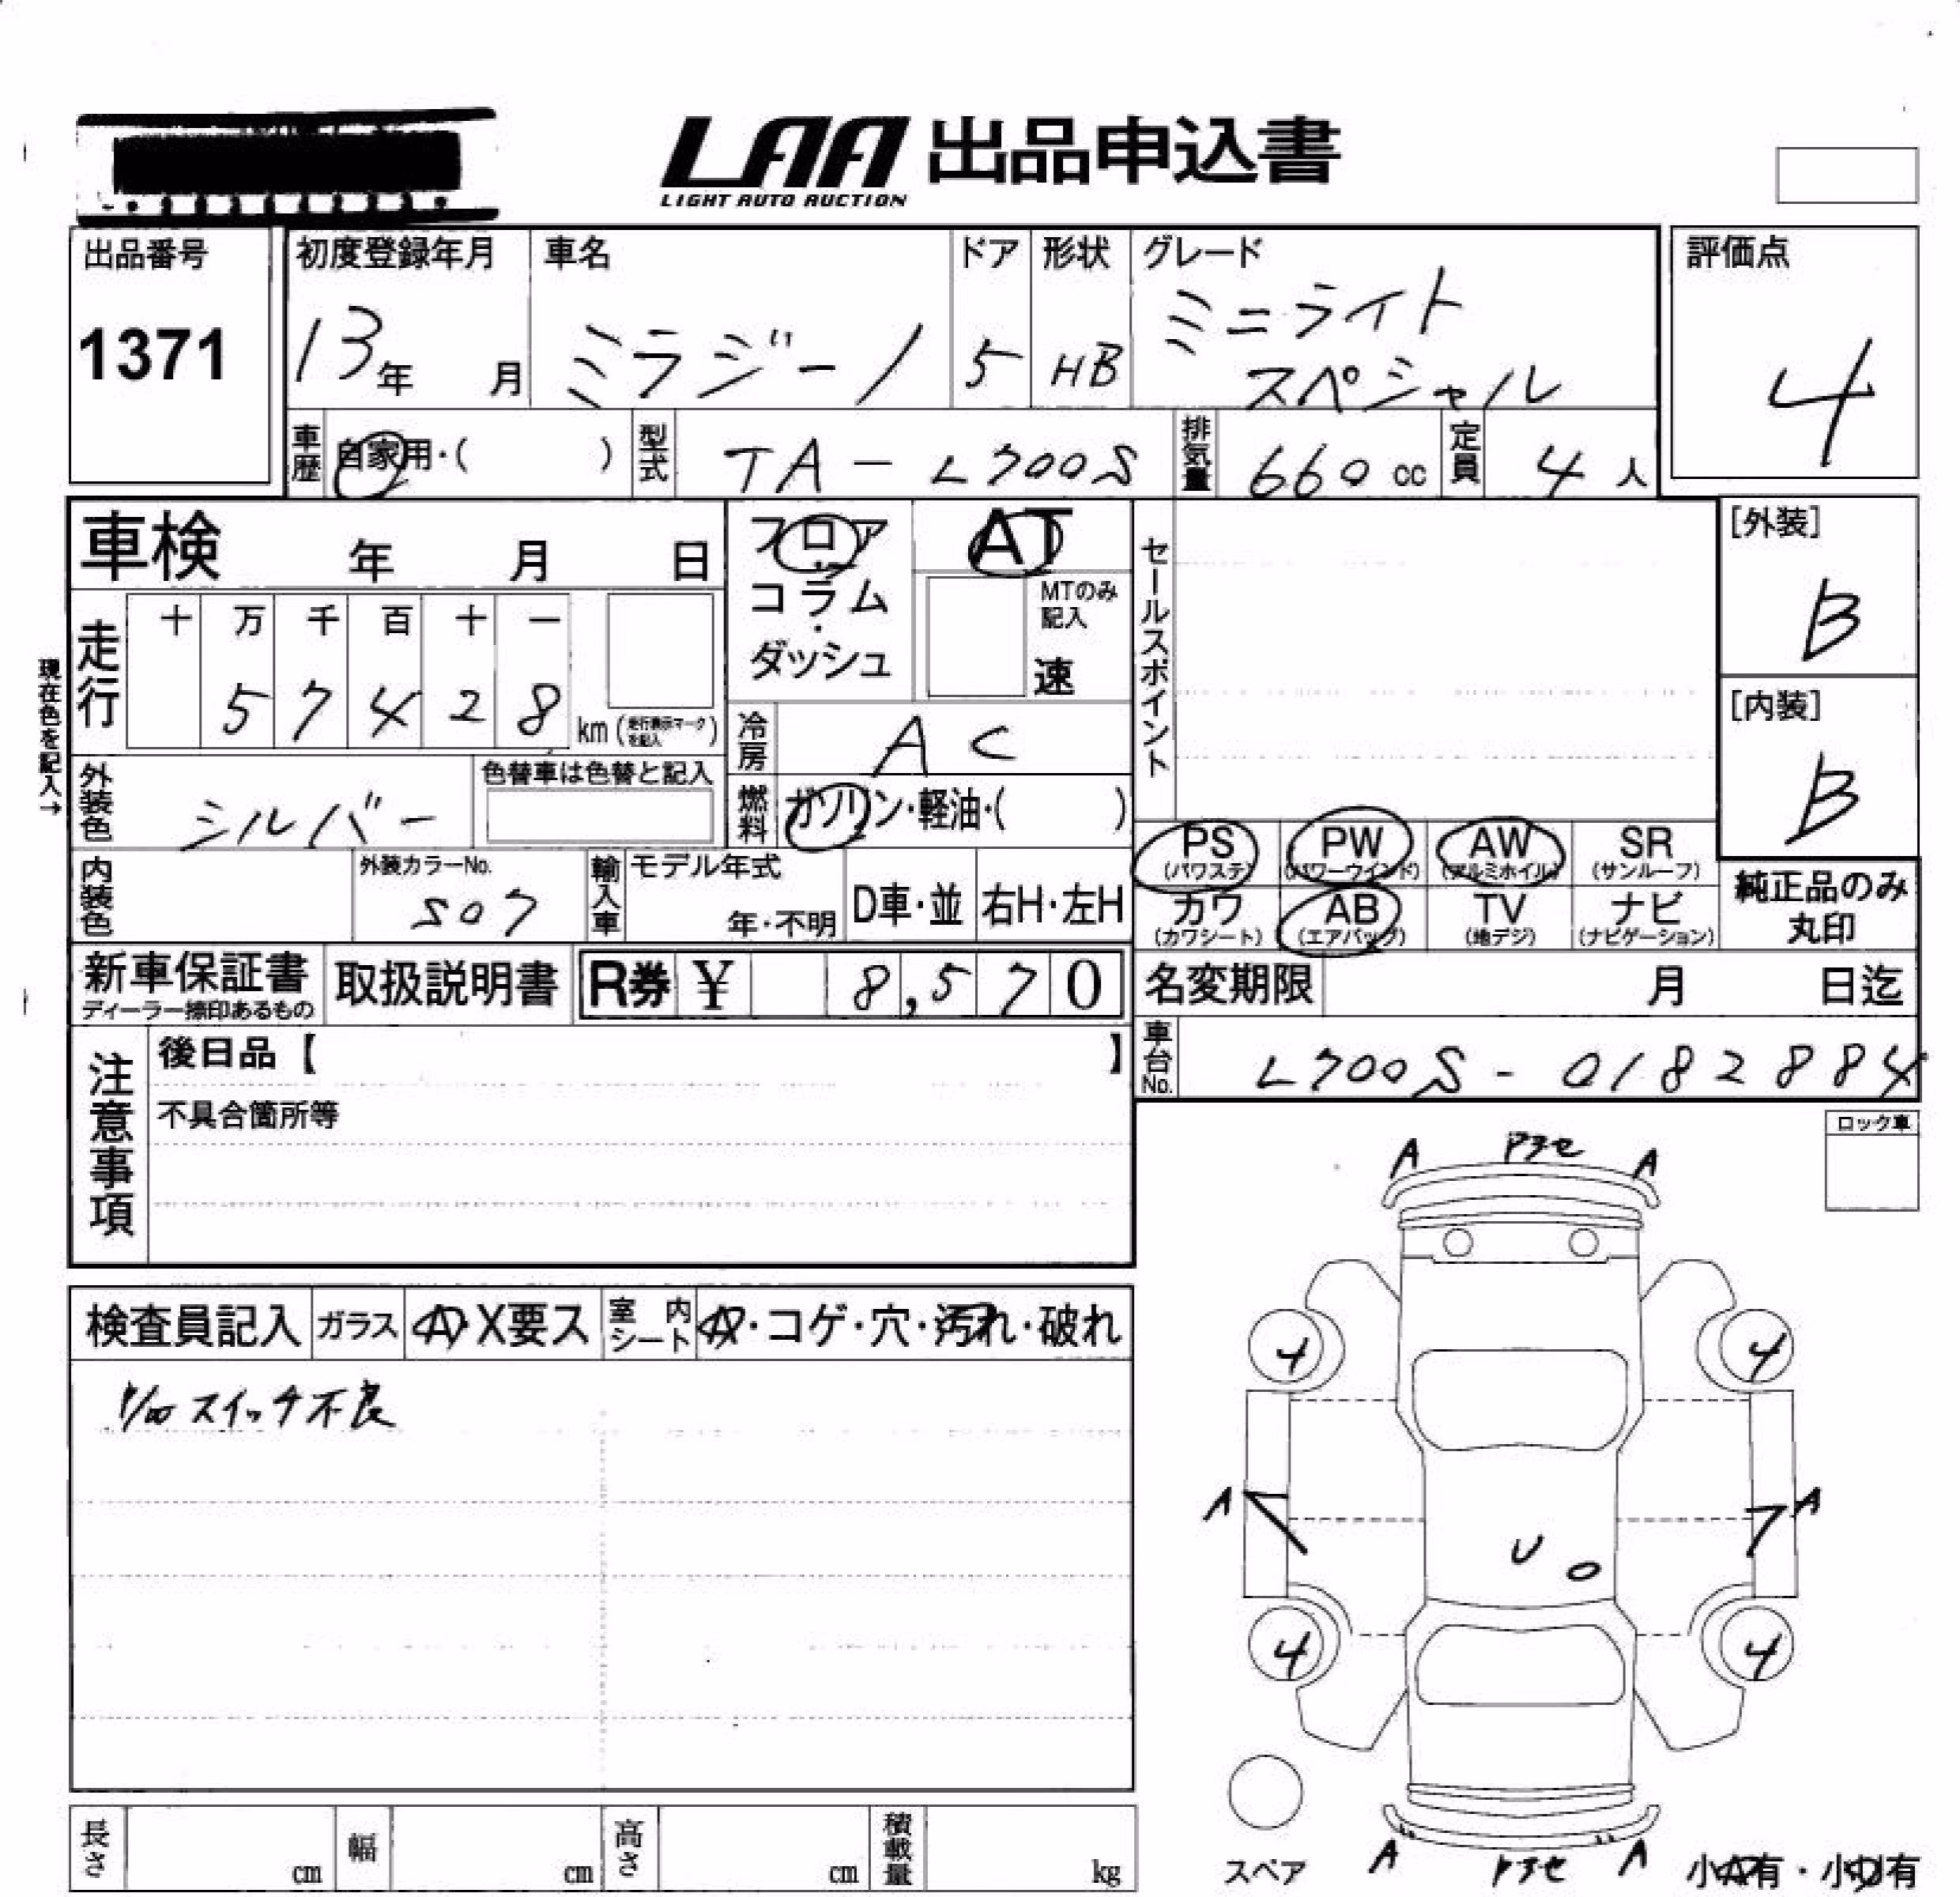 LAA 出品申込書
LIGHT AUTO AUCTION
出品番号 初度登録年月 車名 ドア 形状 グレード 評価点
1371 13年 月 ミラジーノ 5 HB ミニライト
スペシャル 4
車歴 自家用・( ) 型式 TA-L700S 排気量 660cc 定員 4人
車検 年 月 日
フロア・コラム・ダッシュ
AT
MTのみ記入
速
セールスポイント
[外装]
B
走行 十 万 千 百 十 一
5 7 4 2 8 km (走行表示マークを記入)
現在色を記入→
冷房 AC
[内装]
B
外装色 シルバー 色替車は色替と記入
燃料 ガソリン・軽油・( )
PS (パワステ) PW (パワーウインド) AW (アルミホイル) SR (サンルーフ)
内装色 外装カラーNo. S07 輸入車 モデル年式 年・不明 D車・並 右H・左H
カワ (カワシート) AB (エアバッグ) TV (地デジ) ナビ (ナビゲーション)
純正品のみ
丸印
新車保証書 取扱説明書 R券 ¥ 8,570 名変期限 月 日迄
ディーラー捺印あるもの
車台No. L700S-0182884
注意事項
後日品【 】
不具合箇所等
ロック車
検査員記入 ガラス A・X要ス 室内シート A・コゲ・穴・汚れ・破れ
スイッチ不良
A A
4 4
A A
U
4 4
スペア
A A
小A有・小U有
長さ cm 幅 cm 高さ cm 積載量 kg